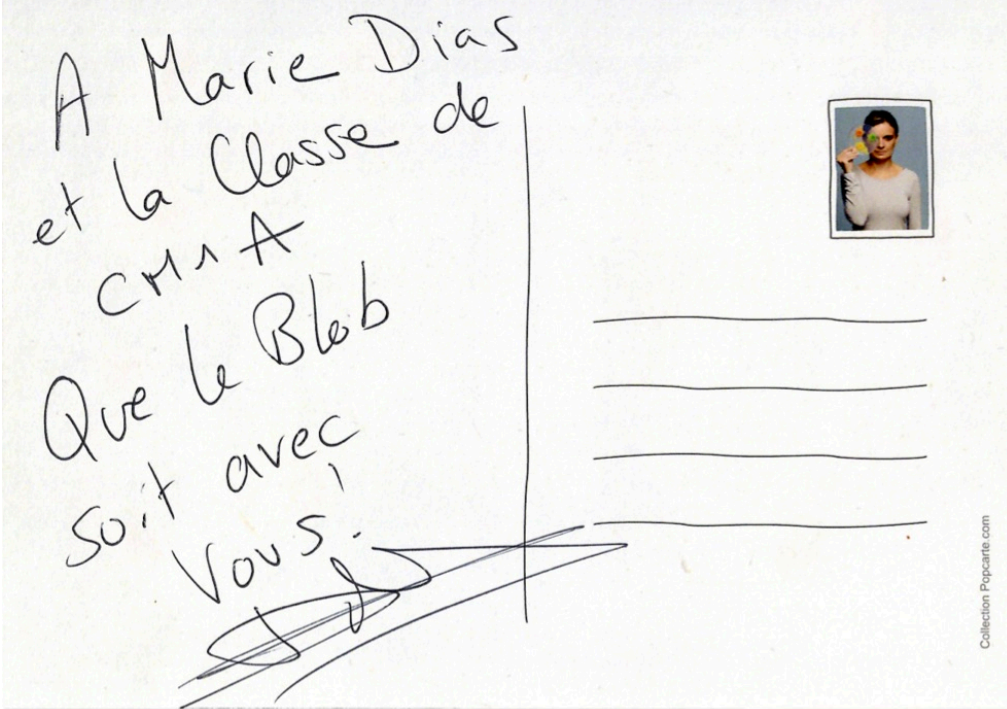 A Marie Dias
et la Classe de
CM1 A
Que le Blob
soit avec
Vous!
Collection Popcarte.com